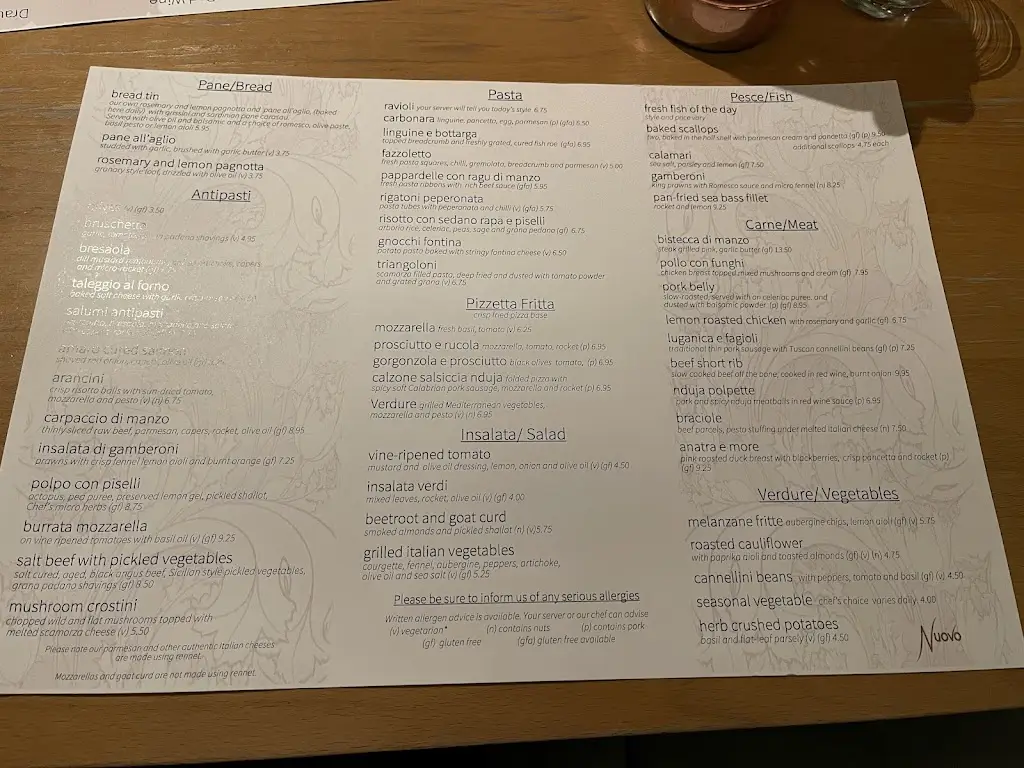 Pane/Bread
bread tin
our own rosemary and lemon pagnotta and pane all'aglio, (baked
here daily) with grissini and sardinian pane carasau.
Served with olive oil and balsamic and a choice of romesco, olive paste,
basil pesto or lemon aioli 5.95
pane all'aglio
studded with garlic, brushed with garlic butter (v) 3.75
rosemary and lemon pagnotta
granary style loaf, drizzled with olive oil (v) 3.75
Antipasti
(gf) 3.50
bruschetta
padano shavings (v) 4.95
bresaola
capers
and micro rocket (gf)
taleggio al forno
baked soft cheese with garlic,
salumi antipasti
arancini
crisp risotto balls with sun-dried tomato,
mozzarella and pesto (v) (n) 6.75
carpaccio di manzo
thinly sliced raw beef, parmesan, capers, rocket, olive oil (gf) 8.95
insalata di gamberoni
prawns with crisp fennel lemon aioli and burnt orange (gf) 7.25
polpo con piselli
octopus, pea puree, preserved lemon gel, pickled shallot,
Chef's micro herbs (gf) 8.75
burrata mozzarella
on vine ripened tomatoes with basil oil (v) (gf) 9.25
salt beef with pickled vegetables
salt cured, aged, black angus beef, Sicilian style pickled vegetables,
grana padano shavings (gf) 8.50
mushroom crostini
chopped wild and flat mushrooms topped with
melted scamorza cheese (v) 5.50
Please note our parmesan and other authentic Italian cheeses
are made using rennet.
Mozzarellas and goat curd are not made using rennet.
Pasta
ravioli your server will tell you today's style 6.75
carbonara linguine, pancetta, egg, parmesan (p) (gfa) 6.50
linguine e bottarga
topped breadcrumb and freshly grated, cured fish roe (gfa) 6.95
fazzoletto
fresh pasta squares, chilli, gremolata, breadcrumb and parmesan (v) 5.00
pappardelle con ragu di manzo
fresh pasta ribbons with rich beef sauce (gfa) 5.95
rigatoni peperonata
pasta tubes with peperonata and chilli (v) (gfa) 5.75
risotto con sedano rapa e piselli
arborio rice, celeriac, peas, sage and grana padano (gf) 6.75
gnocchi fontina
potato pasta baked with stringy fontina cheese (v) 6.50
triangoloni
scamorza filled pasta, deep fried and dusted with tomato powder
and grated grana (v) 6.75
Pizzetta Fritta
crisp fried pizza base
mozzarella fresh basil, tomato (v) 6.25
prosciutto e rucola mozzarella, tomato, rocket (p) 6.95
gorgonzola e prosciutto black olives tomato, (p) 6.95
calzone salsiccia nduja folded pizza with
spicy soft Calabrian pork sausage, mozzarella and rocket (p) 6.95
Verdure grilled Mediterranean vegetables,
mozzarella and pesto (v) (n) 6.95
Insalata/ Salad
vine-ripened tomato
mustard and olive oil dressing, lemon, onion and olive oil (v) (gf) 4.50
insalata verdi
mixed leaves, rocket, olive oil (v) (gf) 4.00
beetroot and goat curd
smoked almonds and pickled shallot (n) (v) 5.75
grilled italian vegetables
courgette, fennel, aubergine, peppers, artichoke,
olive oil and sea salt (v) (gf) 5.25
Please be sure to inform us of any serious allergies
Written allergen advice is available. Your server or our chef can advise
(v) vegetarian* (n) contains nuts (p) contains pork
(gf) gluten free (gfa) gluten free available
Pesce/Fish
fresh fish of the day
style and price vary
baked scallops
two, baked in the half shell with parmesan cream and pancetta (gf) (p) 9.50
additional scallops 4.75 each
calamari
sea salt, parsley and lemon (gf) 7.50
gamberoni
king prawns with Romesco sauce and micro fennel (n) 8.25
pan-fried sea bass fillet
rocket and lemon 9.25
Carne/Meat
bistecca di manzo
steak grilled pink, garlic butter (gf) 13.50
pollo con funghi
chicken breast topped mixed mushrooms and cream (gf) 7.95
pork belly
slow-roasted, served on celeriac puree, and
dusted with balsamic powder (p) (gf) 8.95
lemon roasted chicken with rosemary and garlic (gf) 6.75
luganica e fagioli
traditional thin pork sausage with Tuscan cannellini beans (gf) (p) 7.25
beef short rib
slow cooked beef off the bone, cooked in red wine, burnt onion 9.95
nduja polpette
pork and spicy nduja meatballs in red wine sauce (p) 6.95
braciole
beef parcels, pesto stuffing under melted italian cheese (n) 7.50
anatra e more
pink roasted duck breast with blackberries, crisp pancetta and rocket (p)
(gf) 9.25
Verdure/ Vegetables
melanzane fritte aubergine chips, lemon aioli (gf) (v) 5.75
roasted cauliflower
with paprika aioli and toasted almonds (gf) (v) (n) 4.75
cannellini beans with peppers, tomato and basil (gf) (v) 4.50
seasonal vegetable chef's choice varies daily 4.00
herb crushed potatoes
basil and flat-leaf parsely (v) (gf) 4.50
Nuovo